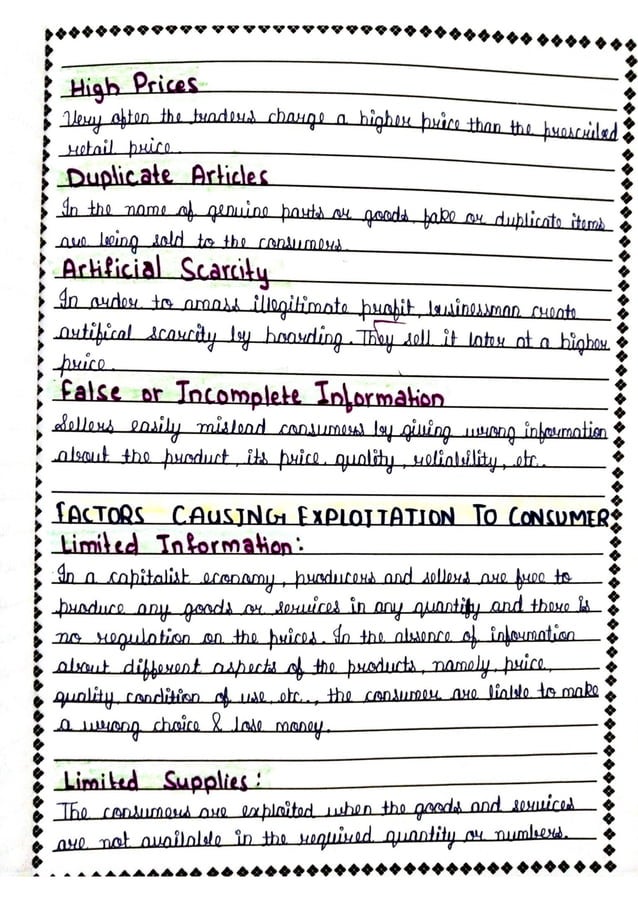 High Prices
Very often the traders charge a higher price than the prescribed
retail price.
Duplicate Articles
In the name of genuine parts or goods, fake or duplicate items
are being sold to the consumers.
Artificial Scarcity
In order to amass illegitimate profit, businessman create
artifical scarcity by hoarding. They sell it later at a higher
price.
False or Incomplete Information
Sellers easily mislead consumers by giving wrong information
about the product, its price, quality, reliability, etc..
FACTORS CAUSING EXPLOITATION TO CONSUMER
Limited Information:
In a capitalist economy, producers and sellers are free to
produce any goods or services in any quantity and there is
no regulation on the prices. In the absence of information
about different aspects of the products, namely, price,
quality, condition of use, etc.., the consumer are liable to make
a wrong choice & lose money.
Limited Supplies:
The consumers are exploited when the goods and services
are not available in the required quantity or numbers.